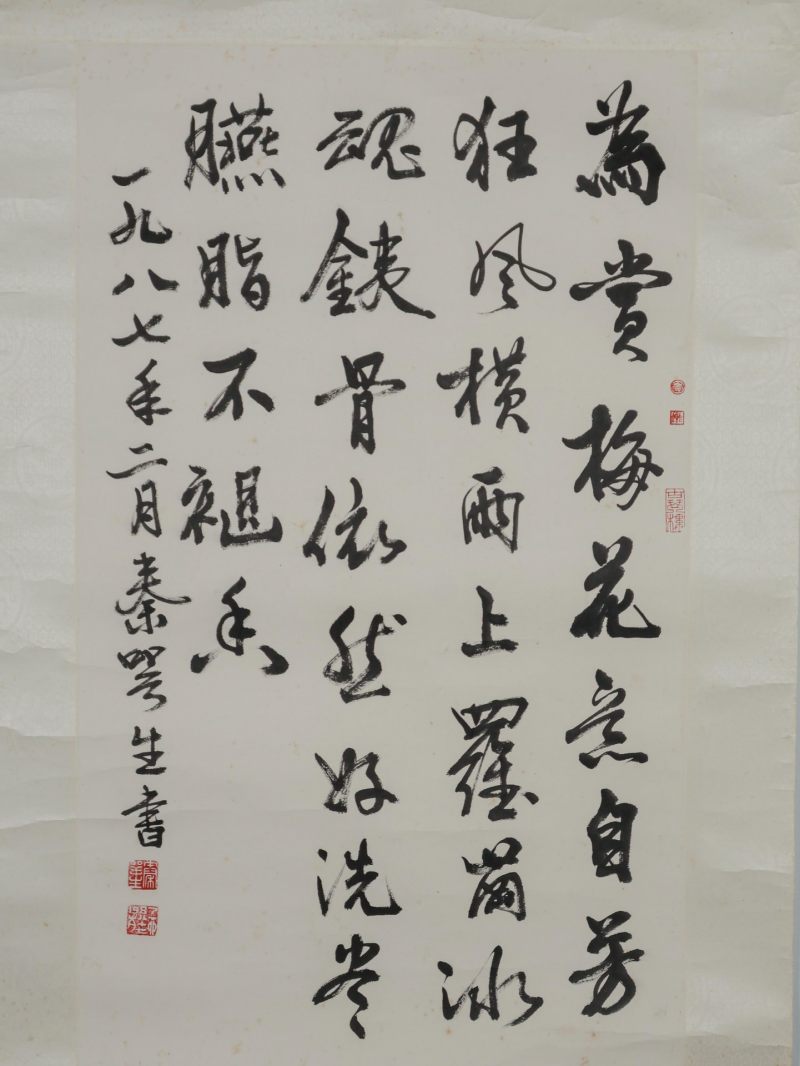 為賞梅花意自芳
狂風横雨上羅崗冰
魂銕骨依然好洗尽
臙脂不褪香
一九八七年二月秦咢生書